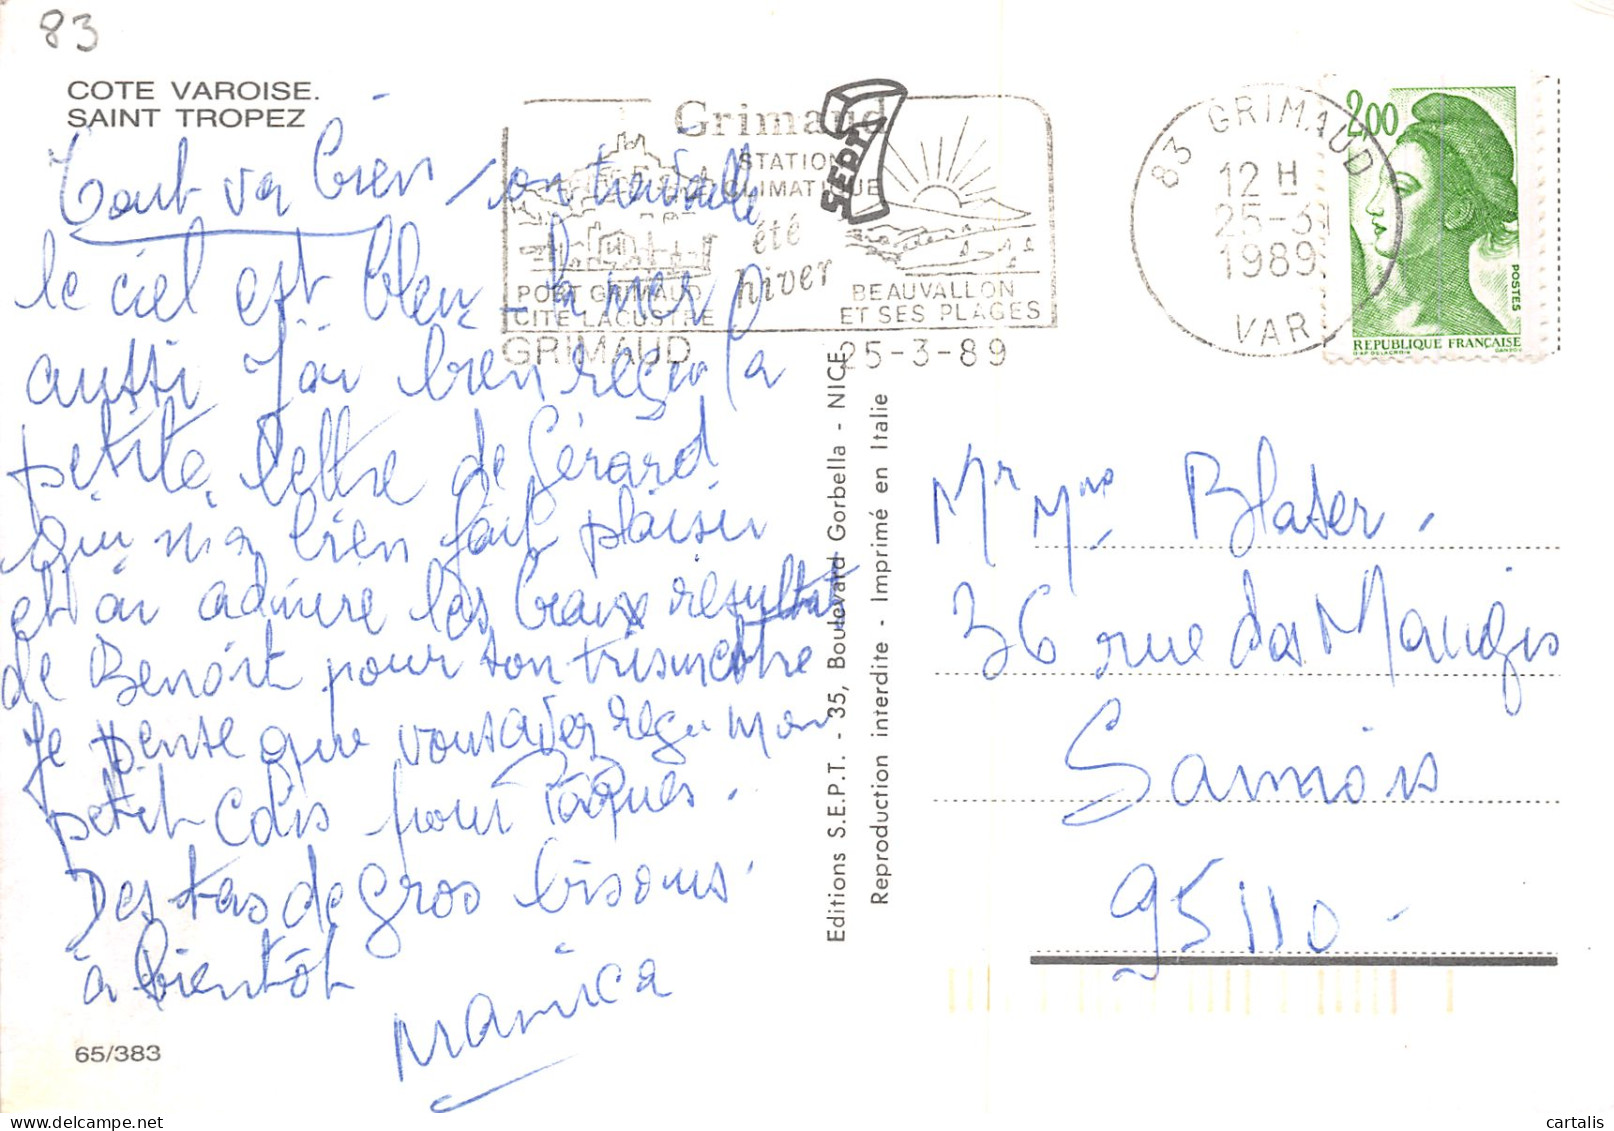 83
COTE VAROISE.
SAINT TROPEZ
Tout va bien, on travaille
le ciel est bleu - la mer
aussi j'ai bien reçu la
petite lettre de Gérard
qui m'a bien fait plaisir
et ai admiré les beaux résultat
de Benoît pour son trismestre
Je pense que vous avez reçu mon
petit colis pour Pâques.
Des tas de gros bisous.
à bientôt
Mamica
65/383
Grimaud
STATION
CLIMATIQUE
été
hiver
PORT GRIMAUD
CITE LACUSTRE
BEAUVALLON
ET SES PLAGES
GRIMAUD
25-3-89
SEPT
Editions S.E.P.T. - 35, Boulevard Gorbella - NICE
Reproduction interdite - Imprimé en Italie
83 GRIMAUD
12 H
25-3
1989
VAR
2,00
POSTES
REPUBLIQUE FRANÇAISE
D'AP DELACROIX GANDON
Mr Mme Blaser.
36 rue des
Sannois
95110.
cartalis